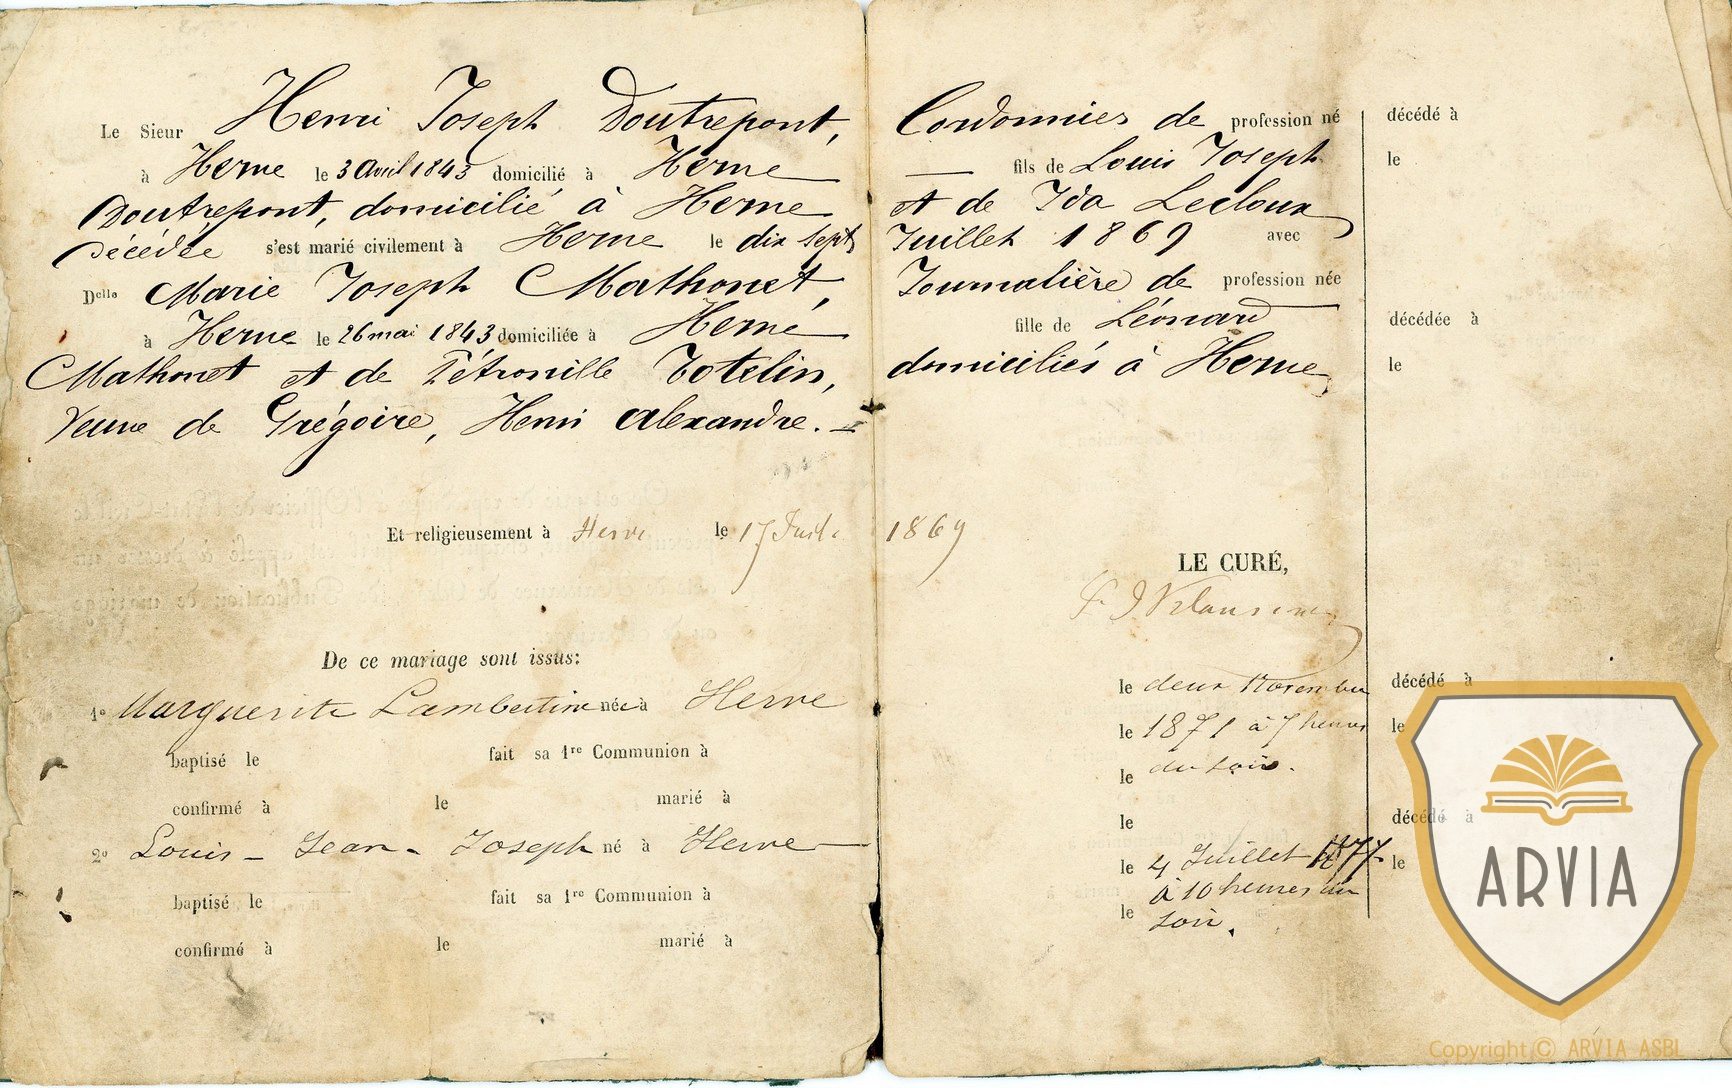 Le Sieur Henri Joseph Doutrepont, Cordonnier de profession né
à Herve le 3 avril 1843 domicilié à Herve — fils de Louis Joseph
Doutrepont, domicilié à Herve et de Ida Lecloux
décédée s'est marié civilement à Herve le dix sept Juillet 1869 avec
Delle Marie Joseph Mathonet, Journalière de profession née
à Herve le 26 mai 1843 domiciliée à Herve fille de Léonard
Mathonet et de Pétronille Totelin, domiciliés à Herve,
Veuve de Grégoire, Henri Alexandre. —
Et religieusement à Herve le 17 Juil. 1869
LE CURÉ,
De ce mariage sont issus:
1° Marguerite Lambertine née à Herve le deux Novembre
baptisé le fait sa 1re Communion à le 1871 à 7 heures
confirmé à le marié à le du soir.
le
2° Louis - Jean - Joseph né à Herve — le 4 Juillet 1877
baptisé le fait sa 1re Communion à à 10 heures du
confirmé à le marié à le soir.
décédé à
le
décédée à
le
décédé à
le
décédé à
le
ARVIA
Copyright © ARVIA ASBL